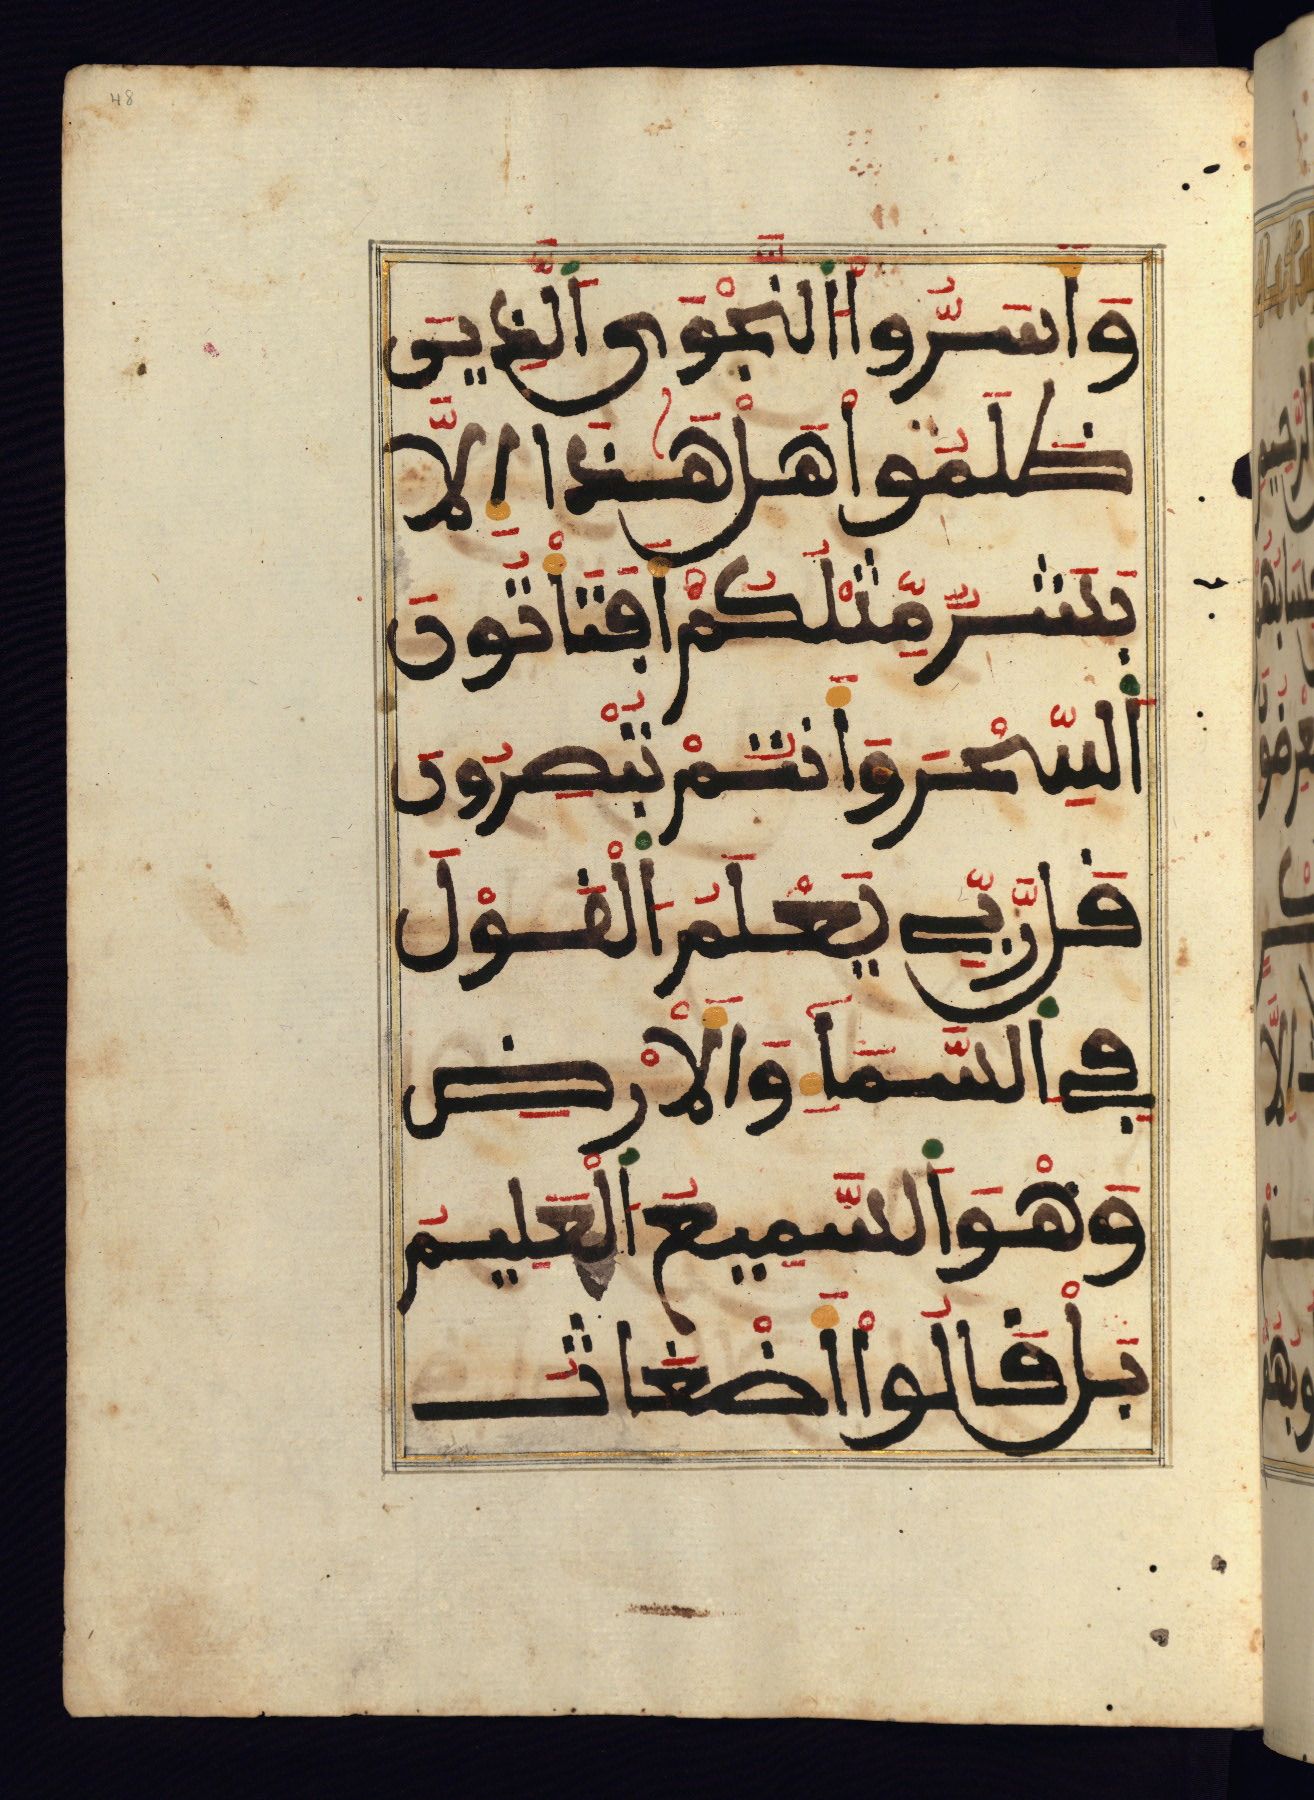 48
وَأَسَرُّوا۟ اُ۬لنَّجْوَى اَ۬لذِينَ
ظَلَمُوا۟ هَلْ هَٰذَا إِلَّا
بَشَرٌ مِّثْلُكُمْ أَفَتَأْتُونَ
اَ۬لسِّحْرَ وَأَنتُمْ تُبْصِرُونَ
قُل رَّبِّي يَعْلَمُ اُ۬لْقَوْلَ
فِي اِ۬لسَّمَآءِ وَالْأَرْضِ
وَهْوَ اَ۬لسَّمِيعُ اُ۬لْعَلِيمُ
بَلْ قَالُوا۟ أَضْغَاثُ